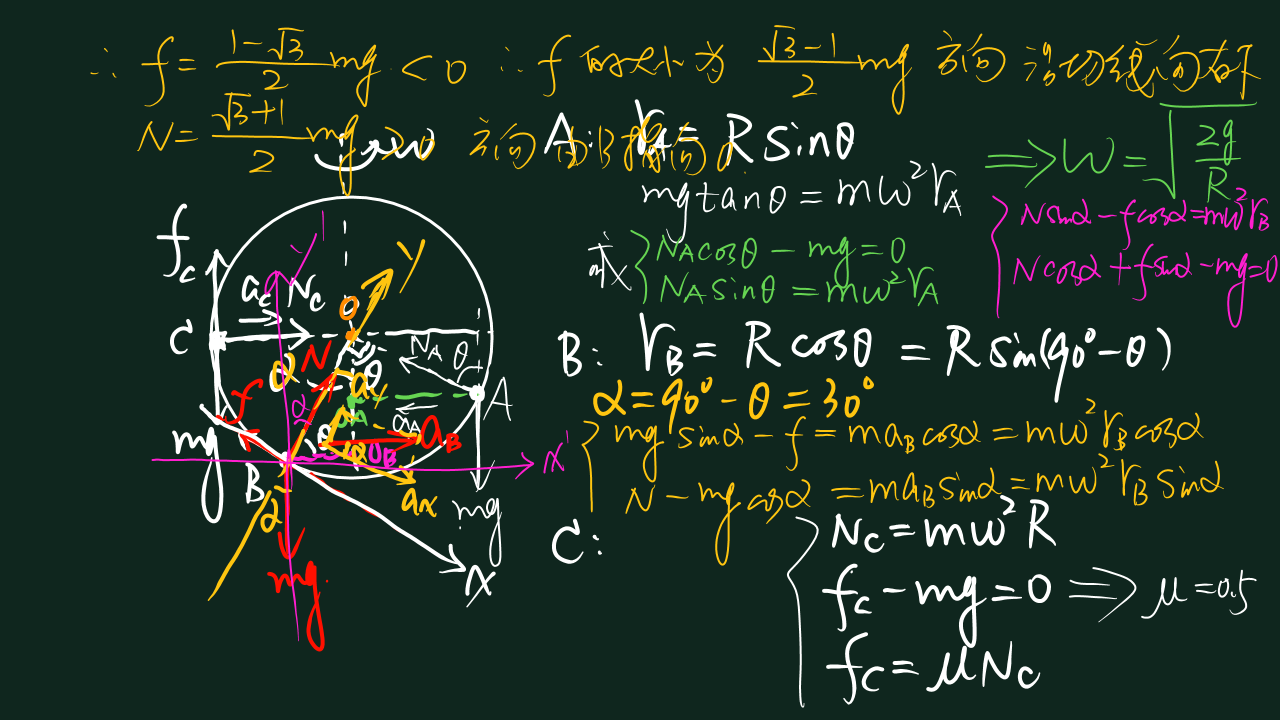 ∴ f = (1-√3)/2 mg < 0 ∴ f 的大小为 (√3-1)/2 mg 方向 沿切线向右下
N = (√3+1)/2 mg > 0 方向 由B指向O
ω
A: r_A = R sinθ
⟹ W = √(2g/R)
mg tanθ = mω²r_A
或 { N_A cosθ - mg = 0
N_A sinθ = mω²r_A
{ N sinα - f cosα = mω²r_B
N cosα + f sinα - mg = 0
B: r_B = R cosθ = R sin(90° - θ)
α = 90° - θ = 30°
{ mg sinα - f = m a_B cosα = mω² r_B cosα
N - mg cosα = m a_B sinα = mω² r_B sinα
C: { N_C = mω²R
f_C - mg = 0 ⟹ μ = 0.5
f_C = μN_C
f_C
y'
y
a_C
N_C
O
C
N
N_A
θ
α
θ
a_y
A
f
α
r_A
a_A
mg
θ
a_B
r_B
α
x'
B
a_x
α
mg
mg
x